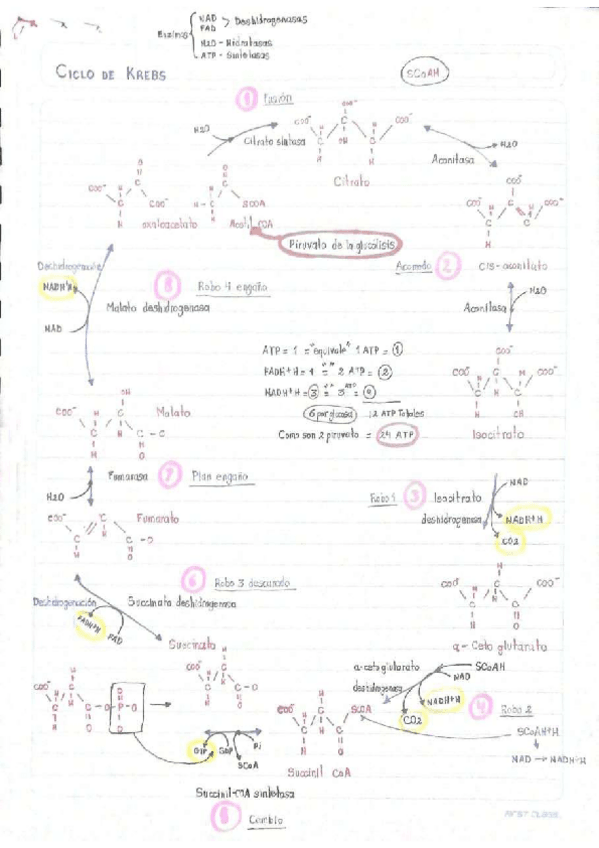 Enzimas
NAD
FAD
> Deshidrogenasas
H2O - Hidratasas
ATP - Sintetasas
CICLO DE KREBS
SCoAH
1 Fusión
H2O
Citrato sintasa
Citrato
Aconitasa
H2O
oxaloacetato
Acetil COA
Piruvato de la glucólisis
Acomodo 2
Cis-aconitato
Aconitasa
H2O
Isocitrato
8 Robo 4 engaño
Malato deshidrogenasa
NAD
ATP = 1 = "equivale" 1 ATP = 1
FADH+H = 1 = " 2 ATP = 2
NADH+H = 3 = " 3 ATP = 9
6 por glucosa
12 ATP Totales
Como son 2 piruvato = 24 ATP
Malato
Fumarasa
7 Plan engaño
H2O
Fumarato
Robo 1 3 Isocitrato
deshidrogenasa
NAD
NADH+H
CO2
6 Robo 3 descarado
Deshidrogenación
Succinato deshidrogenasa
FADH+H
FAD
Succinato
α-Ceto glutarato
α-ceto glutarato
deshidrogenasa
SCoAH
NAD
NADH+H
CO2
4 Robo 2
SCoAH+H
NAD → NADH+H
GTP
GDP
Pi
SCoA
Succinil CoA
Succinil-COA sintetasa
Cambio
FIRST CLASS